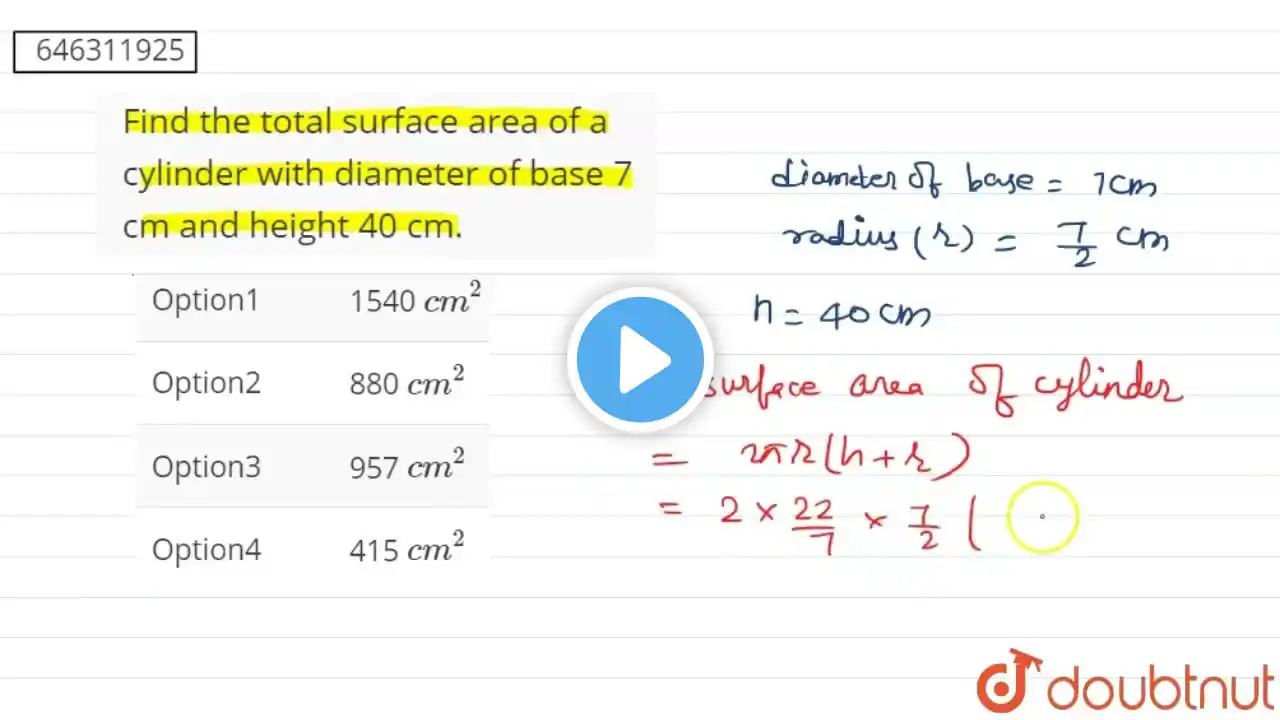 646311925
Find the total surface area of a
cylinder with diameter of base 7
cm and height 40 cm.
Option1 1540 cm²
Option2 880 cm²
Option3 957 cm²
Option4 415 cm²
diameter of base = 7cm
radius (r) = 7/2 cm
h = 40 cm
surface area of cylinder
= 2πr(h+r)
= 2 × 22/7 × 7/2 (
doubtnut